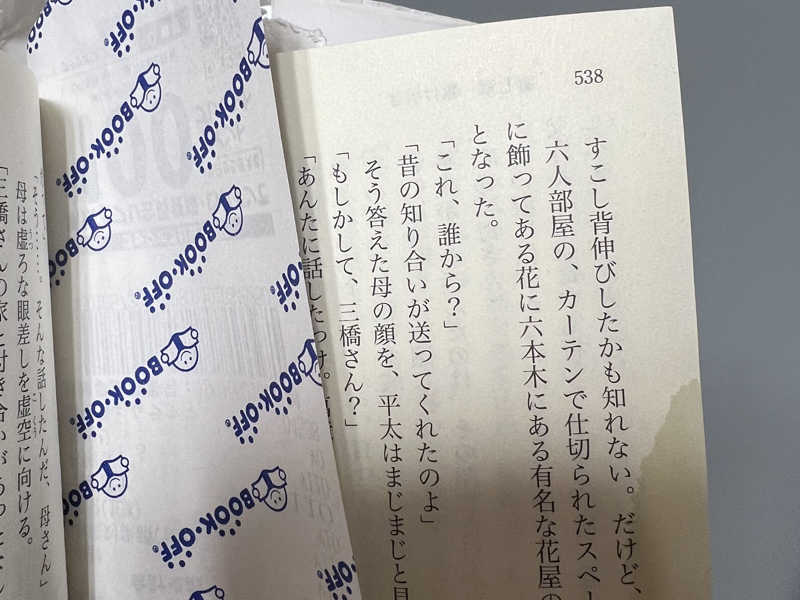 538
すこし背伸びしたかも知れない。だけど、
六人部屋の、カーテンで仕切られたスペー
に飾ってある花に六本木にある有名な花屋の
となった。
「これ、誰から？」
「昔の知り合いが送ってくれたのよ」
そう答えた母の顔を、平太はまじまじと見
「もしかして、三橋さん？」
「あんたに話したっけ。
BOOK・OFF®
BOOK・OFF®
BOOK・OFF®
BOOK・OFF®
BOOK・OFF®
BOOK・OFF®
BOOK・OFF®
「そう……。そんな話したんだ、母さん」
母は虚ろな眼差しを虚空に向ける。
「三橋さんの家と付き合いがあったなん